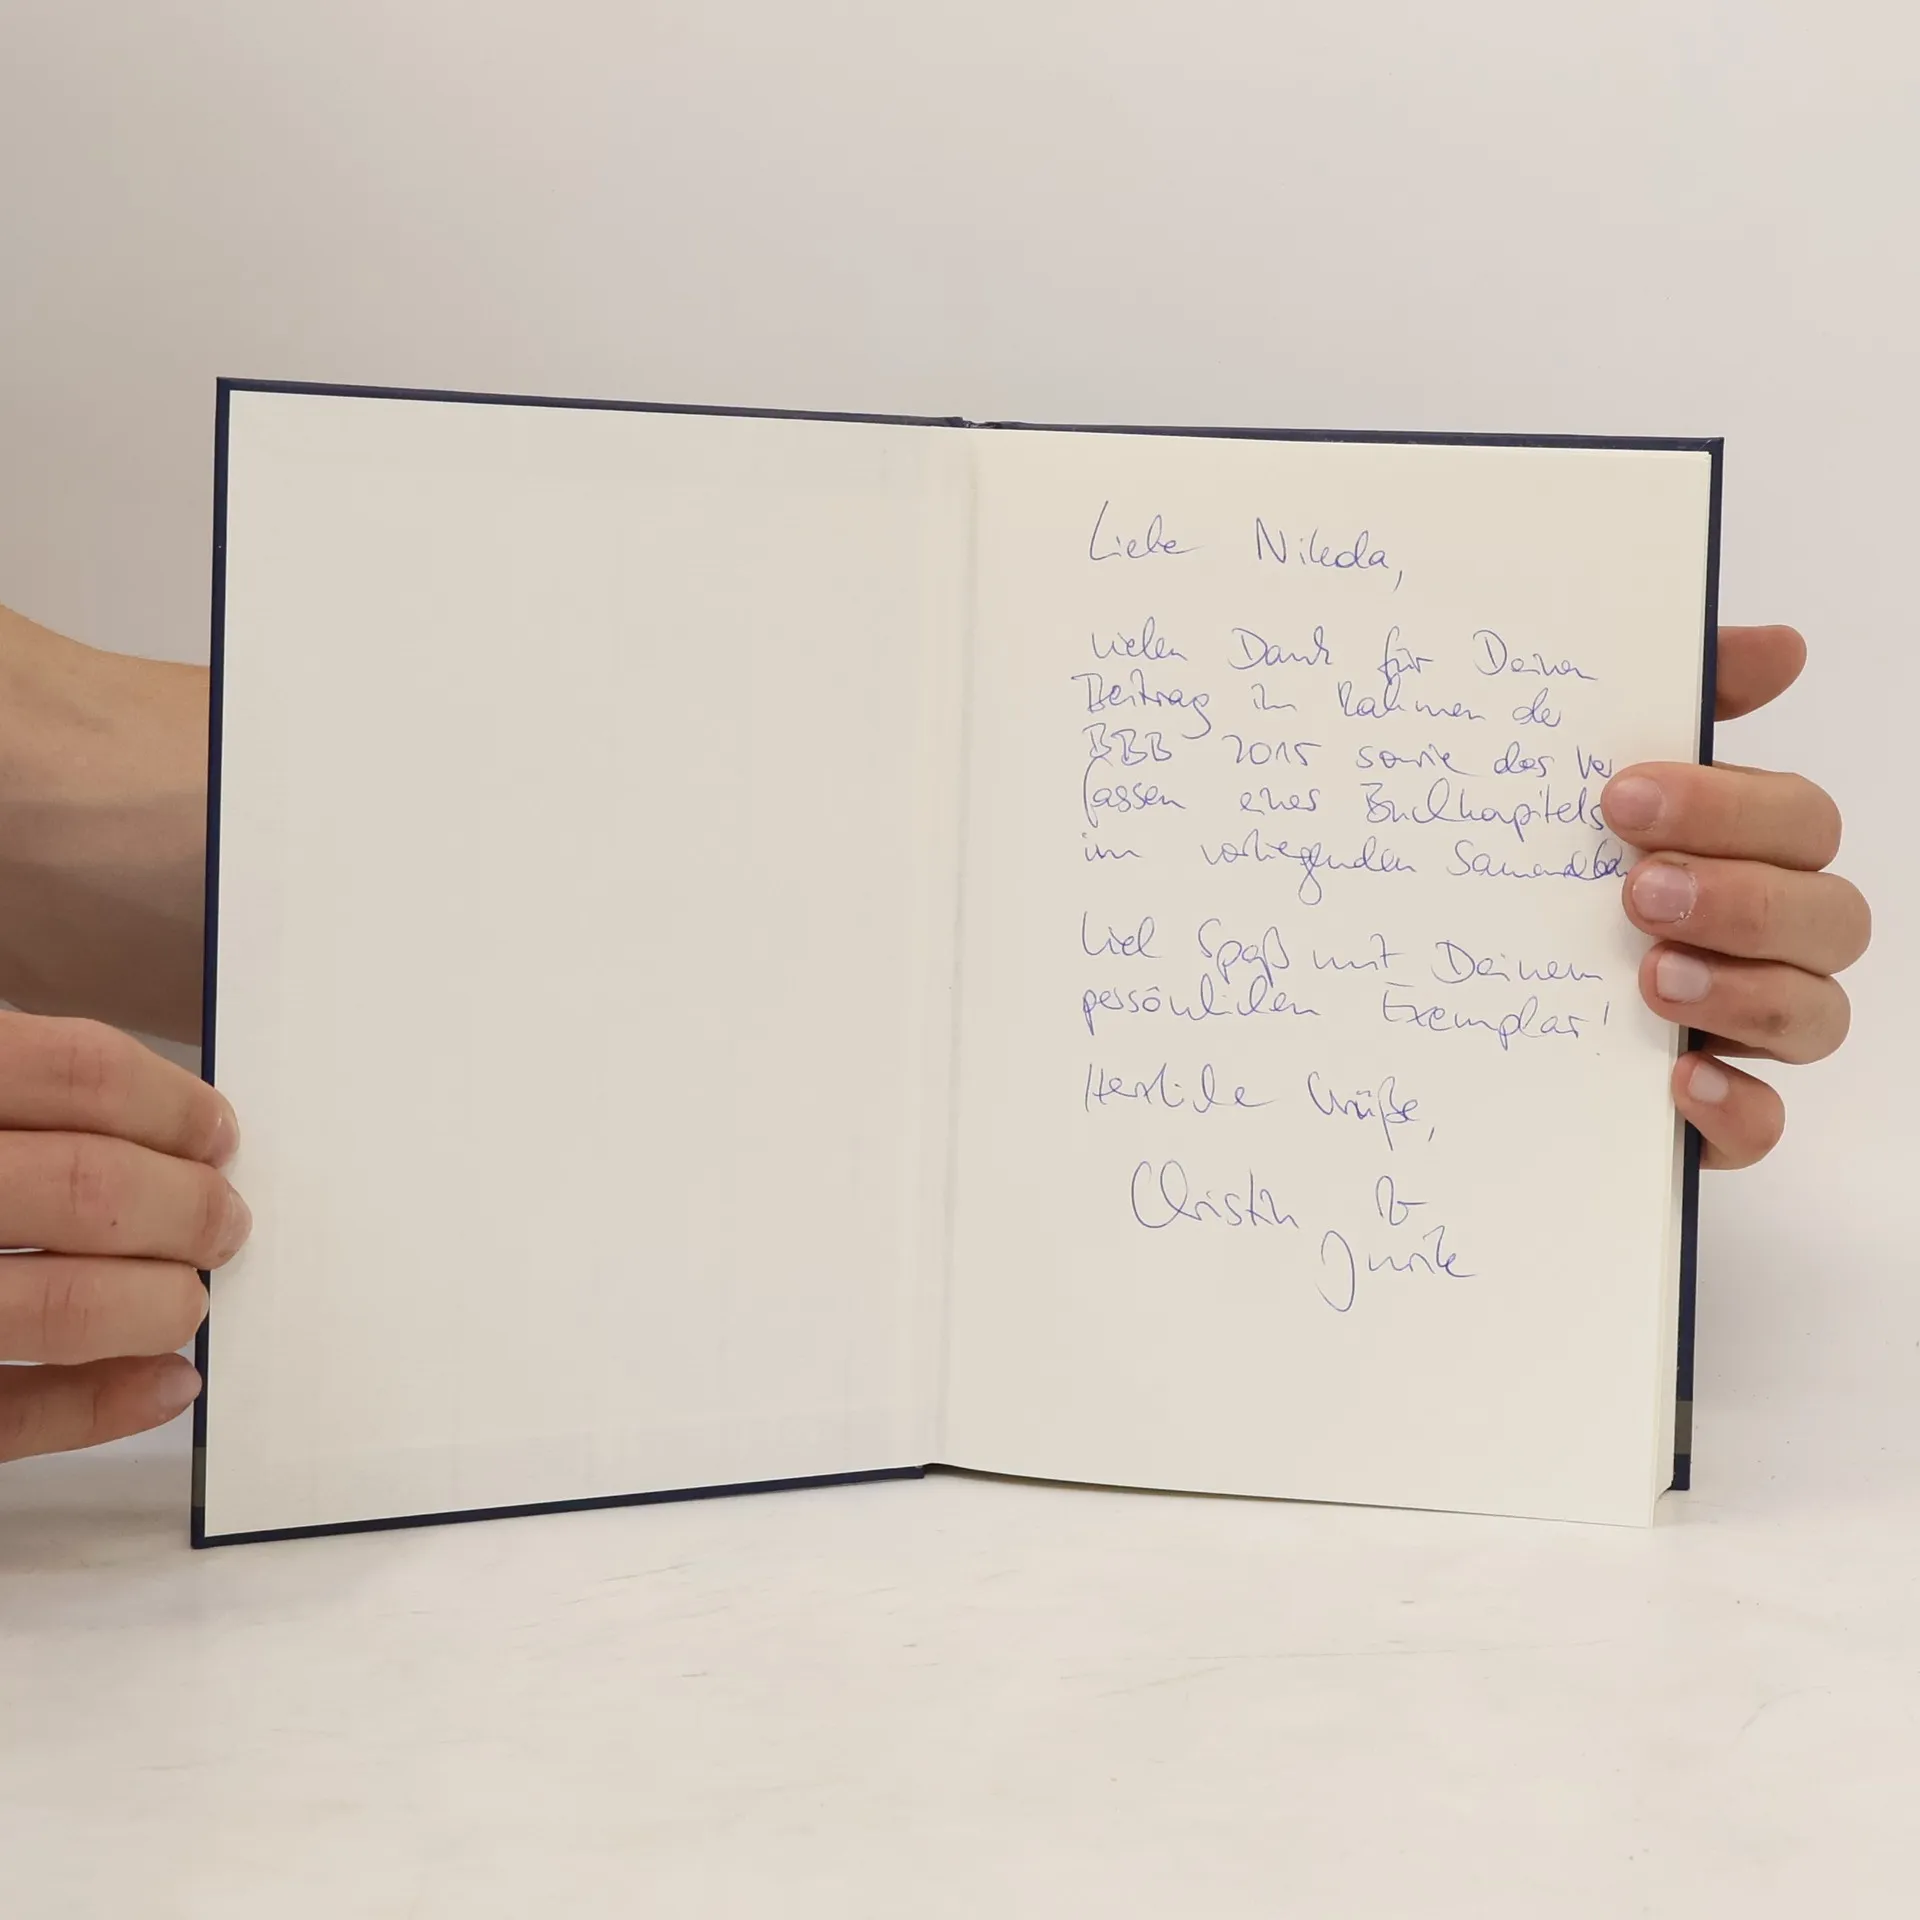 Liebe Nikola,
vielen Dank für Deinen
Beitrag im Rahmen der
BBB 2015 sowie das Ver
fassen eines Buchkapitels
im vorliegenden Sammelban
Viel Spaß mit Deinem
persönlichen Exemplar!
Herzliche Grüße,
Christin &